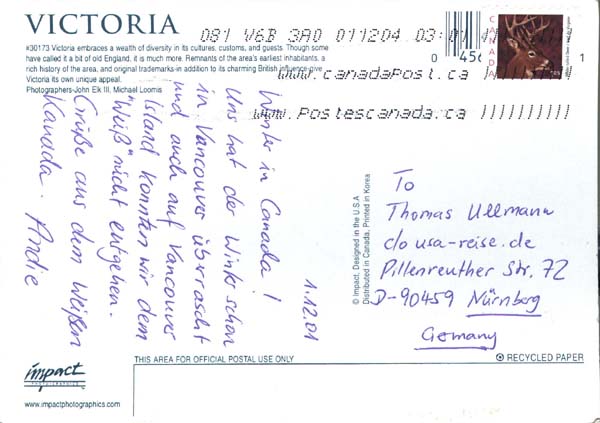 VICTORIA
#30173 Victoria embraces a wealth of diversity in its cultures, customs, and guests. Though some
have called it a bit of old England, it is much more. Remnants of the area's earliest inhabitants, a
rich history of the area, and original trademarks-in addition to its charming British influence-give
Victoria its own unique appeal.
Photographers-John Elk III, Michael Loomis
081 V6B 3A0 011204 03:01
www.canadaPost.ca
www.Postescanada.ca
CANADA
0 456
1
1.12.01
Winter in Canada!
Uns hat der Winter schon
in Vancouver überrascht
und auch auf Vancouver
Island konnten wir dem
"Weiß" nicht entgehen.
Grüße aus dem Weißen
Kanada. Andie
© Impact, Designed in the U.S.A
Distributed in Canada, Printed in Korea
To
Thomas Ullmann
c/o usa-reise.de
Pillenreuther Str. 72
D-90459 Nürnberg
Germany
impact
PHOTOGRAPHICS
www.impactphotographics.com
THIS AREA FOR OFFICIAL POSTAL USE ONLY
RECYCLED PAPER